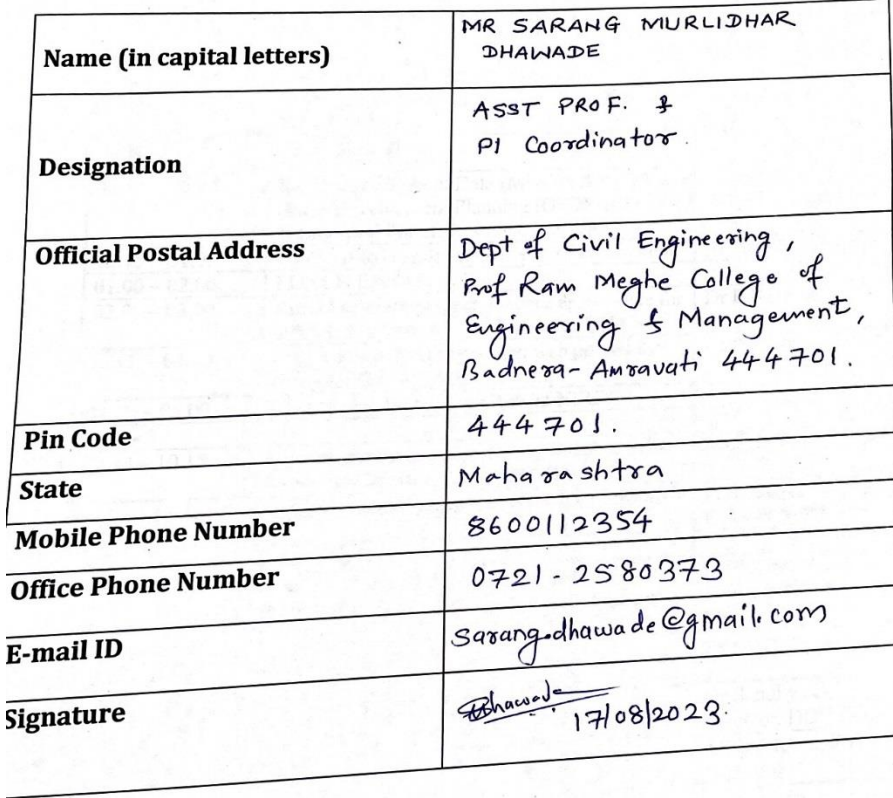 Name (in capital letters)
MR SARANG MURLIDHAR
DHAWADE
Designation
ASST PROF. &
PI Coordinator.
Official Postal Address
Dept of Civil Engineering,
Prof Ram Meghe College of
Engineering & Management,
Badnera-Amravati 444701.
Pin Code
444701.
State
Maharashtra
Mobile Phone Number
8600112354
Office Phone Number
0721-2580373
E-mail ID
sarang.dhawade@gmail.com
Signature
Dhawade
17/08/2023.